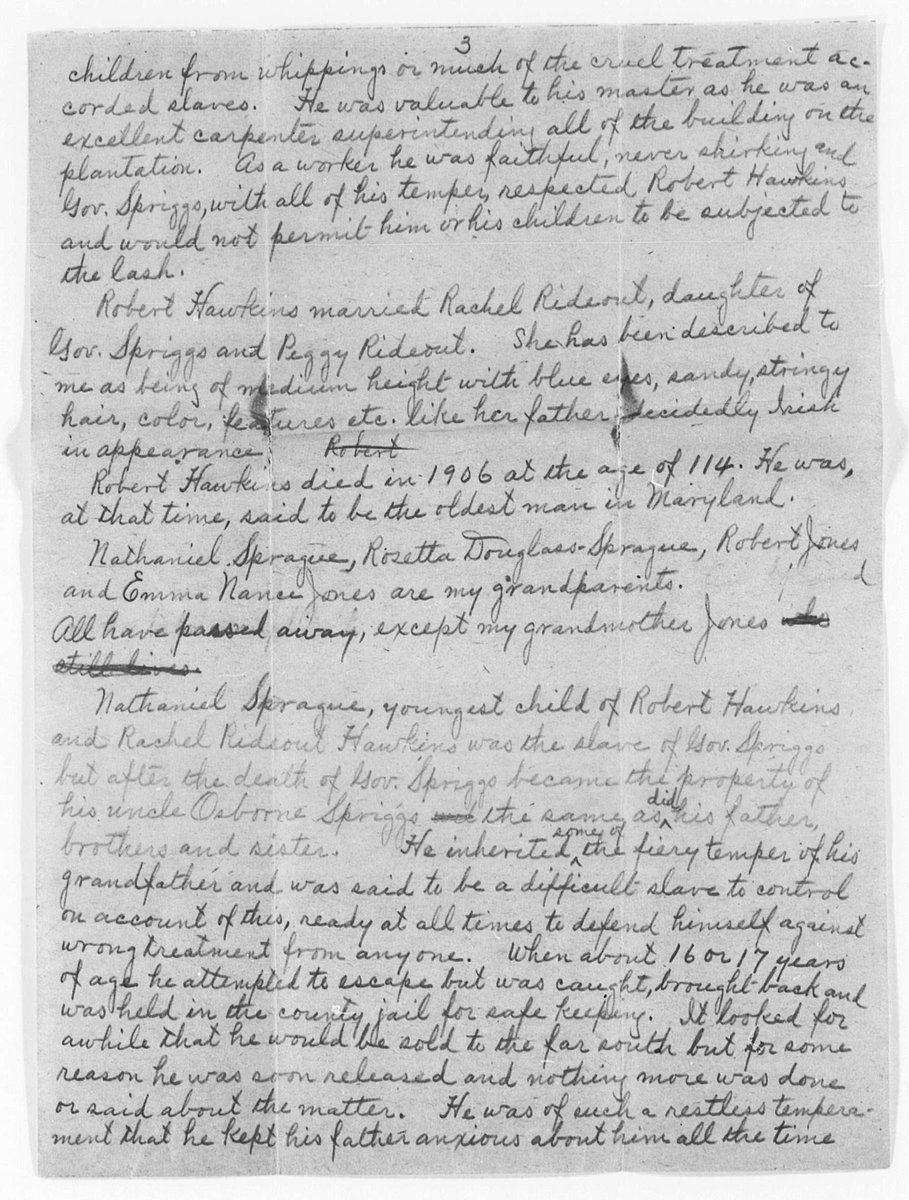 3
children from whippings or much of the cruel treatment ac-
corded slaves. He was valuable to his master as he was an
excellent carpenter superintending all of the building on the
plantation. As a worker he was faithful, never shirking and
Gov. Spriggs, with all of his temper, respected Robert Hawkins
and would not permit him or his children to be subjected to
the lash.
Robert Hawkins married Rachel Rideout, daughter of
Gov. Spriggs and Peggy Rideout. She has been described to
me as being of medium height with blue eyes, sandy, stringy
hair, color, features etc. like her father decidedly Irish
in appearance. Robert
Robert Hawkins died in 1906 at the age of 114. He was,
at that time, said to be the oldest man in Maryland.
Nathaniel Sprague, Rosetta Douglass-Sprague, Robert Jones
and Emma Nance Jones are my grandparents.
All have passed away, except my grandmother Jones who
still lives.
Nathaniel Sprague, youngest child of Robert Hawkins
and Rachel Rideout Hawkins was the slave of Gov. Spriggs
but after the death of Gov. Spriggs became the property of
his uncle Osborne Spriggs the same as did his father,
brothers and sister. He inherited some of the fiery temper of his
grandfather and was said to be a difficult slave to control
on account of this, ready at all times to defend himself against
wrong treatment from anyone. When about 16 or 17 years
of age he attempted to escape but was caught, brought back and
was held in the county jail for safe keeping. It looked for
awhile that he would be sold to the far south but for some
reason he was soon released and nothing more was done
or said about the matter. He was of such a restless tempera-
ment that he kept his father anxious about him all the time